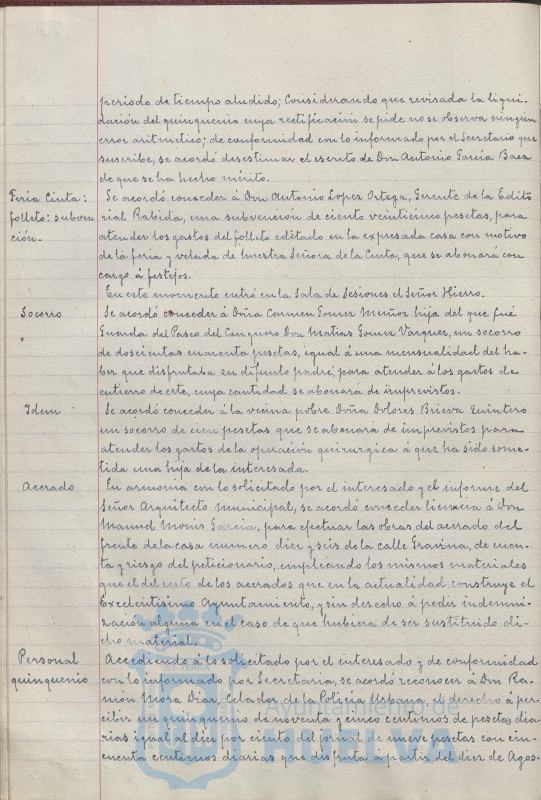 periodo de tiempo aludido; Considerando que revisada la liqui-
dación del quinquenio cuya rectificación se pide no se observa ningun
error aritmetico; de conformidad con lo informado por el Secretario que
suscribe, se acordó desestimar el escrito de Don Antonio Garcia Baez
de que se ha hecho mérito.
Feria Cinta: Se acordó conceder á Don Antonio Lopez Ortega, Gerente de la Edito-
folleto: subven- rial Rabida, una subvencion de ciento veinticinco pesetas, para
ción.- atender los gastos del folleto editado en la expresada casa con motivo
de la feria y velada de Nuestra Señora de la Cinta, que se abonará con
cargo á festejos.
En este momento entró en la Sala de Sesiones el Señor Hierro.
Socorro Se acordó conceder á Doña Carmen Gomez Muñoz hija del que fué
Guarda del Paseo del Conquero Don Matias Gomez Vazquez, un socorro
de doscientas cuarenta pesetas, igual á una mensualidad del ha-
ber que disfrutaba su difunto padre, para atender á los gastos de
entierro de este, cuya cantidad se abonará de imprevistos.
Idem Se acordó conceder á la vecina pobre Doña Dolores Brieva Quintero
un socorro de cien pesetas que se abonará de imprevistos para
atender los gastos de la operación quirurgica á que ha sido some-
tida una hija de la interesada.
Acerado En armonia con lo solicitado por el interesado y el informe del
Señor Arquitecto municipal, se acordó conceder licencia á Don
Manuel Monis Garcia, para efectuar las obras del acerado del
frente de la casa numero diez y seis de la calle Gravina, de cuen-
ta y riesgo del peticionario, empleando los mismos materiales
que el del resto de los acerados que en la actualidad construye el
Excelentisimo Ayuntamiento, y sin derecho á pedir indemni-
zación alguna en el caso de que hubiera de ser sustituido di-
cho material.
Personal Accediendo á lo solicitado por el interesado y de conformidad
quinquenio con lo informado por Secretaria, se acordó reconocer á Don Ra-
món Mora Diaz, Celador de la Policia Urbana, el derecho á per-
cibir un quinquenio de noventa y cinco centimos de pesetas dia-
rias igual al diez por ciento del jornal de nueve pesetas con cin-
cuenta centimos diarias que disfruta á partir del diez de Agos-
Ayuntamiento de
HUELVA